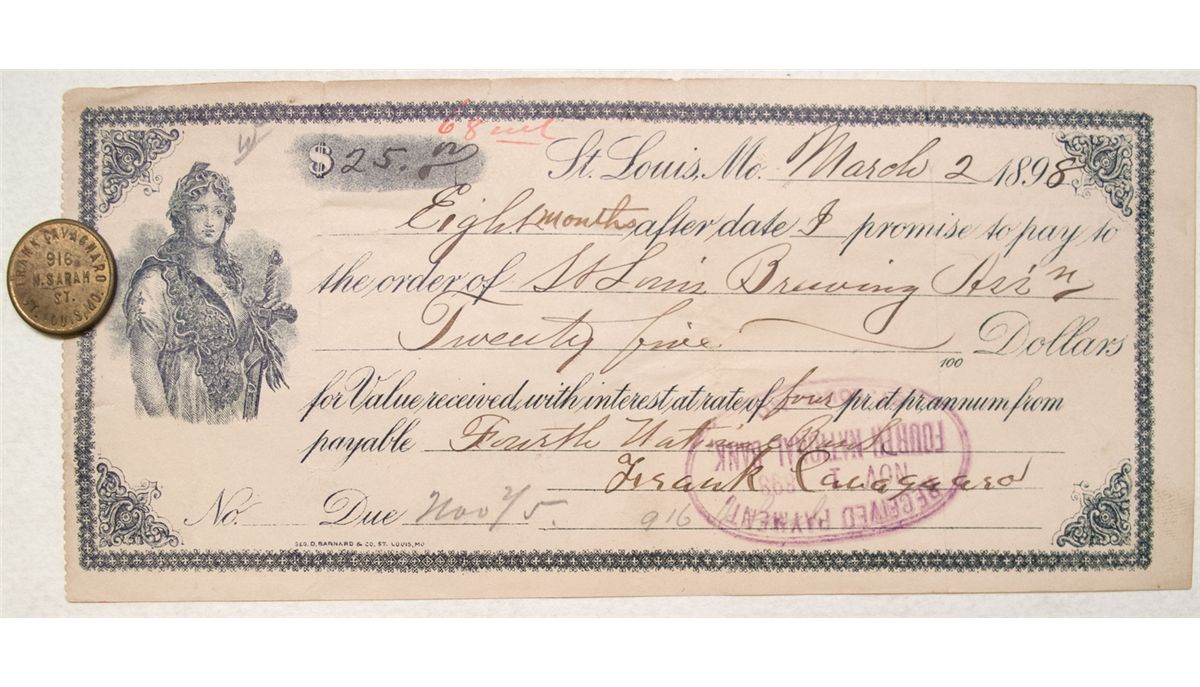 68
$25.00 St. Louis, Mo. March 2 1898
Eight months after date I promise to pay to
the order of St Louis Brewing Ass'n
Twenty five
100 Dollars
for Value received, with interest at rate of four pr. ct. pr. annum from
payable Fourth National Bank
Frank Cavagnaro
No. Due Nov 2/5. 916
GEO. D. BARNARD & CO. ST. LOUIS, MO
RECEIVED PAYMENT
NOV 1 1898
FOURTH NATIONAL BANK
FRANK CAVAGNARO
916
N. SARAH
ST.
ST. LOUIS, MO.